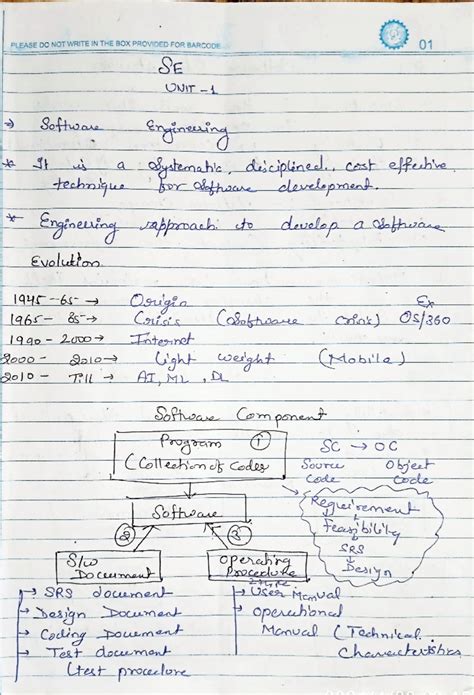 PLEASE DO NOT WRITE IN THE BOX PROVIDED FOR BARCODE
01
SE
UNIT - 1
→ Software Engineering
* It is a systematic, disciplined, cost effective
technique for software development.
* Engineering approach to develop a software
Evolution
Ex
1945-65 → Origin
1965- 85 → Crisis (Software crisis) OS/360
1990 - 2000 → Internet
2000 - 2010 → Light weight (Mobile)
2010 - Till → AI, ML, DL
Software Component
Program ①
(Collection of Codes
SC → OC
Source Object
Code Code
Software
Requirement
Feasibility
SRS
Design
② ③
S/W
Document
Operating
Procedure
→ SRS document
→ Design Document
→ Coding Document
→ Test document
(test procedure
→ User Manual
→ Operational
Manual (Technical
Characteristics